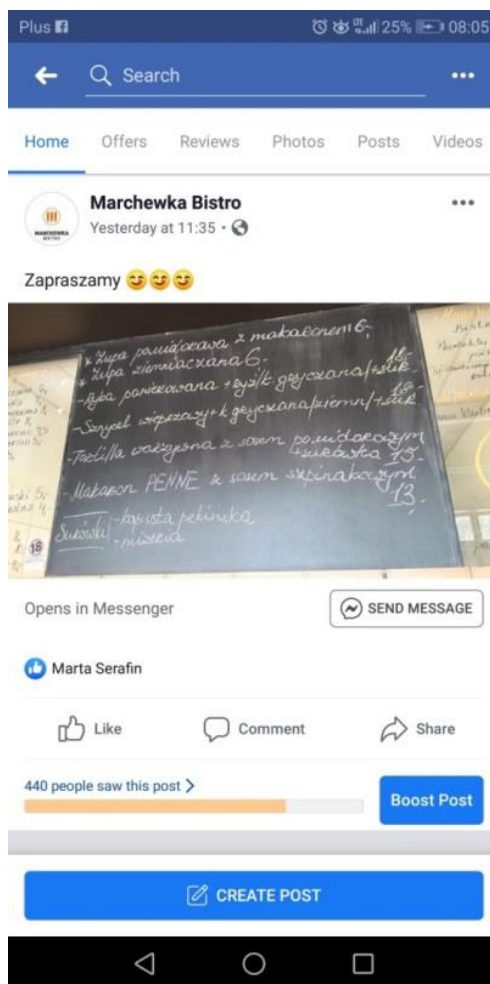 Plus
25% 08:05
Search
Home Offers Reviews Photos Posts Videos
MARCHEWKA
BISTRO
Marchewka Bistro
Yesterday at 11:35
Zapraszamy 😋😋😋
* Zupa pomidorowa z makaronem 6,-
* Zupa ziemniaczana 6.-
-Ryba panierowana + ryż/k gryczana/+sur.
-Sznycel wieprzowy + k gryczana/ziemn/+sur.
-Tortilla warzywna z sosem pomidorowym
+surówka 15.-
-Makaron PENNE z sosem szpinakowym
13.-
Surówki -kapusta pekińska
-mizeria
18
Opens in Messenger
SEND MESSAGE
Marta Serafin
Like Comment Share
440 people saw this post
Boost Post
CREATE POST